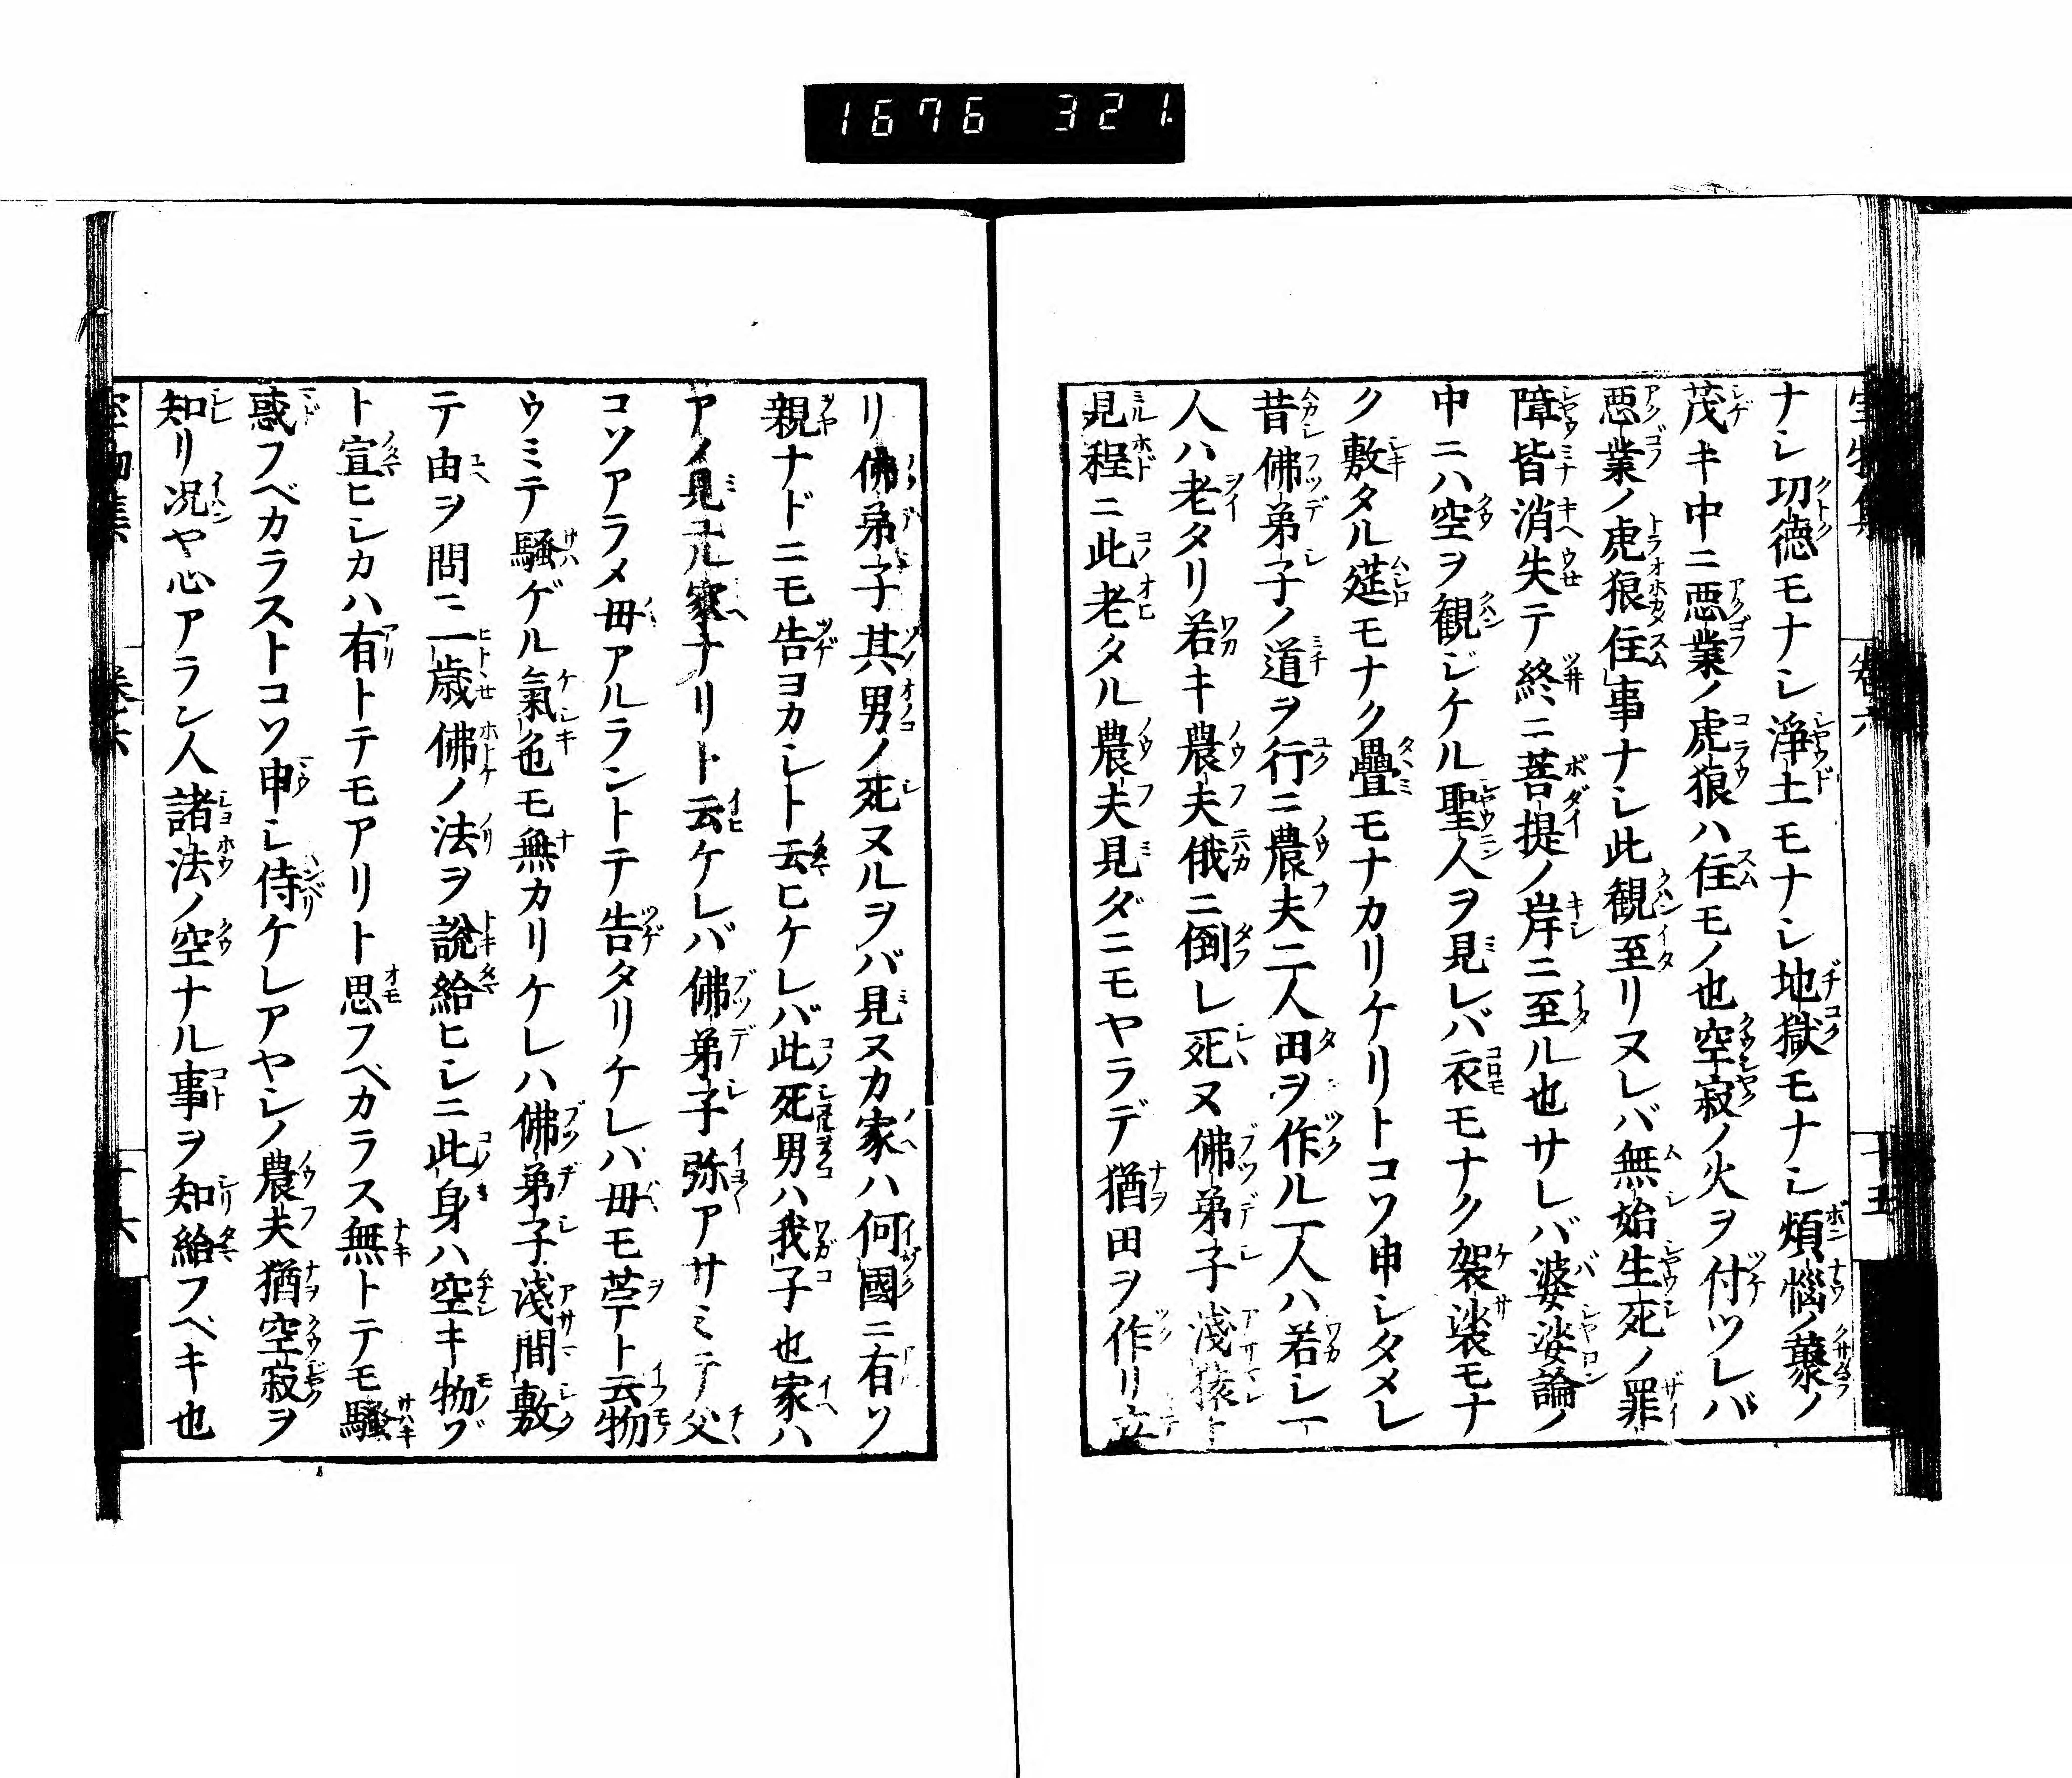 1676 321.
ナシ切徳モナシ浄土モナシ地獄モナシ煩惱ノ藂ノ
茂キ中ニ悪業ノ虎狼ハ住モノ也空寂ノ火ヲ付ツレバ
悪業ノ虎狼住事ナシ此観至リヌレバ無始生死ノ罪
障皆消失テ終ニ菩提ノ岸ニ至ル也サレバ婆娑論ノ
中ニハ空ヲ観ジケル聖人ヲ見レバ衣モナク袈裟モナ
ク敷タル莚モナク疊モナカリケリトコソ申シタメレ
昔佛弟子ノ道ヲ行ニ農夫二人田ヲ作ル一人ハ若シ一
人ハ老タリ若キ農夫俄ニ倒レ死ヌ佛弟子淺猿ト
見程ニ此老タル農夫見ダニモヤラデ猶田ヲ作リ立
リ佛弟子其男ノ死ヌルヲバ見ヌカ家ハ何國ニ有ソ
親ナドニモ告ヨカシト云ヒケレバ此死男ハ我子也家ハ
アノ見ユル家ナリト云ケレバ佛弟子弥アサミテ父
コソアラメ毋アルラントテ告タリケレバ毋モ苧ト云物
ウミテ騒ゲル氣色モ無カリケレハ佛弟子淺間敷
テ由ヲ問ニ一歳佛ノ法ヲ説給ヒシニ此身ハ空キ物ゾ
ト宣ヒシカハ有トテモアリト思フベカラス無トテモ騒
惑フベカラストコソ申シ侍ケレアヤシノ農夫猶空寂ヲ
知リ况ヤ心アラン人諸法ノ空ナル事ヲ知給フベキ也
巻六
十五
十六